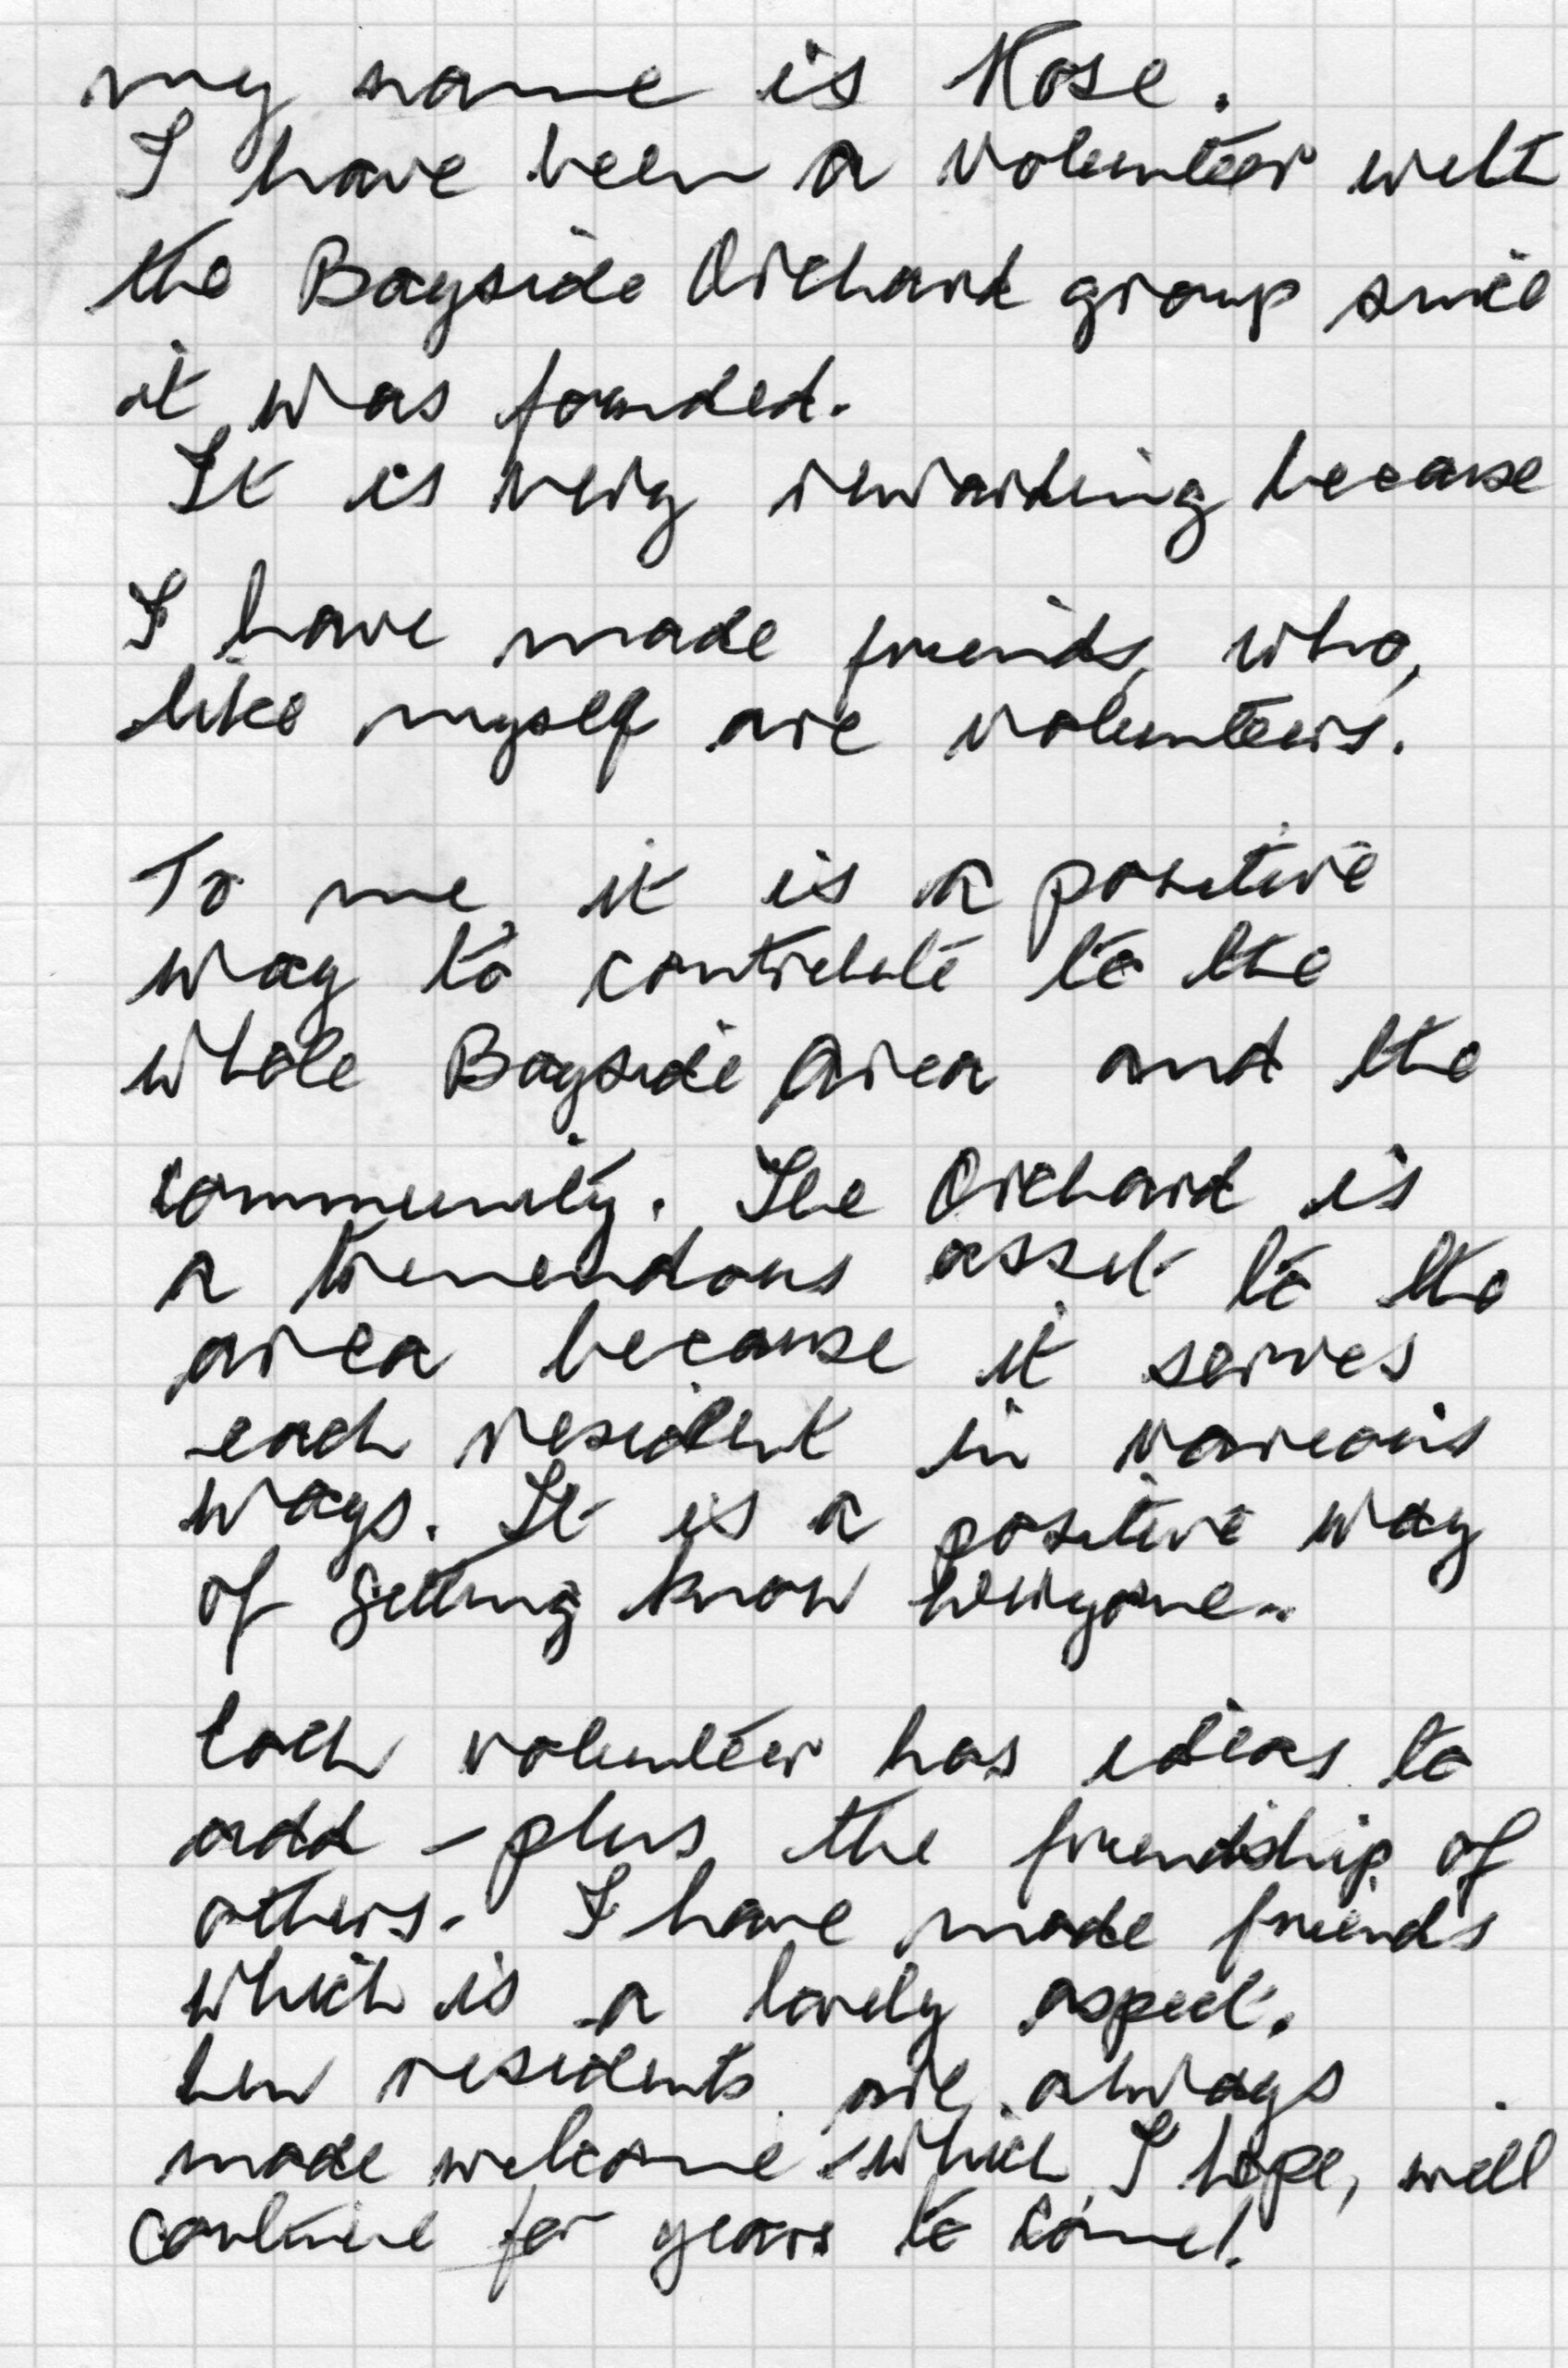 my name is Rose.
I have been a volunteer with
the Bayside Orchard group since
it was founded.
It is very rewarding because
I have made friends, who,
like myself are volunteers.
To me, it is a positive
way to contribute to the
whole Bayside Area and the
community. The Orchard is
a tremendous asset to the
area because it serves
each resident in various
ways. It is a positive way
of getting know everyone.
Each volunteer has ideas to
add - plus the friendship of
others. I have made friends
which is a lovely aspect.
New residents are always
made welcome - which I hope, will
continue for years to come!